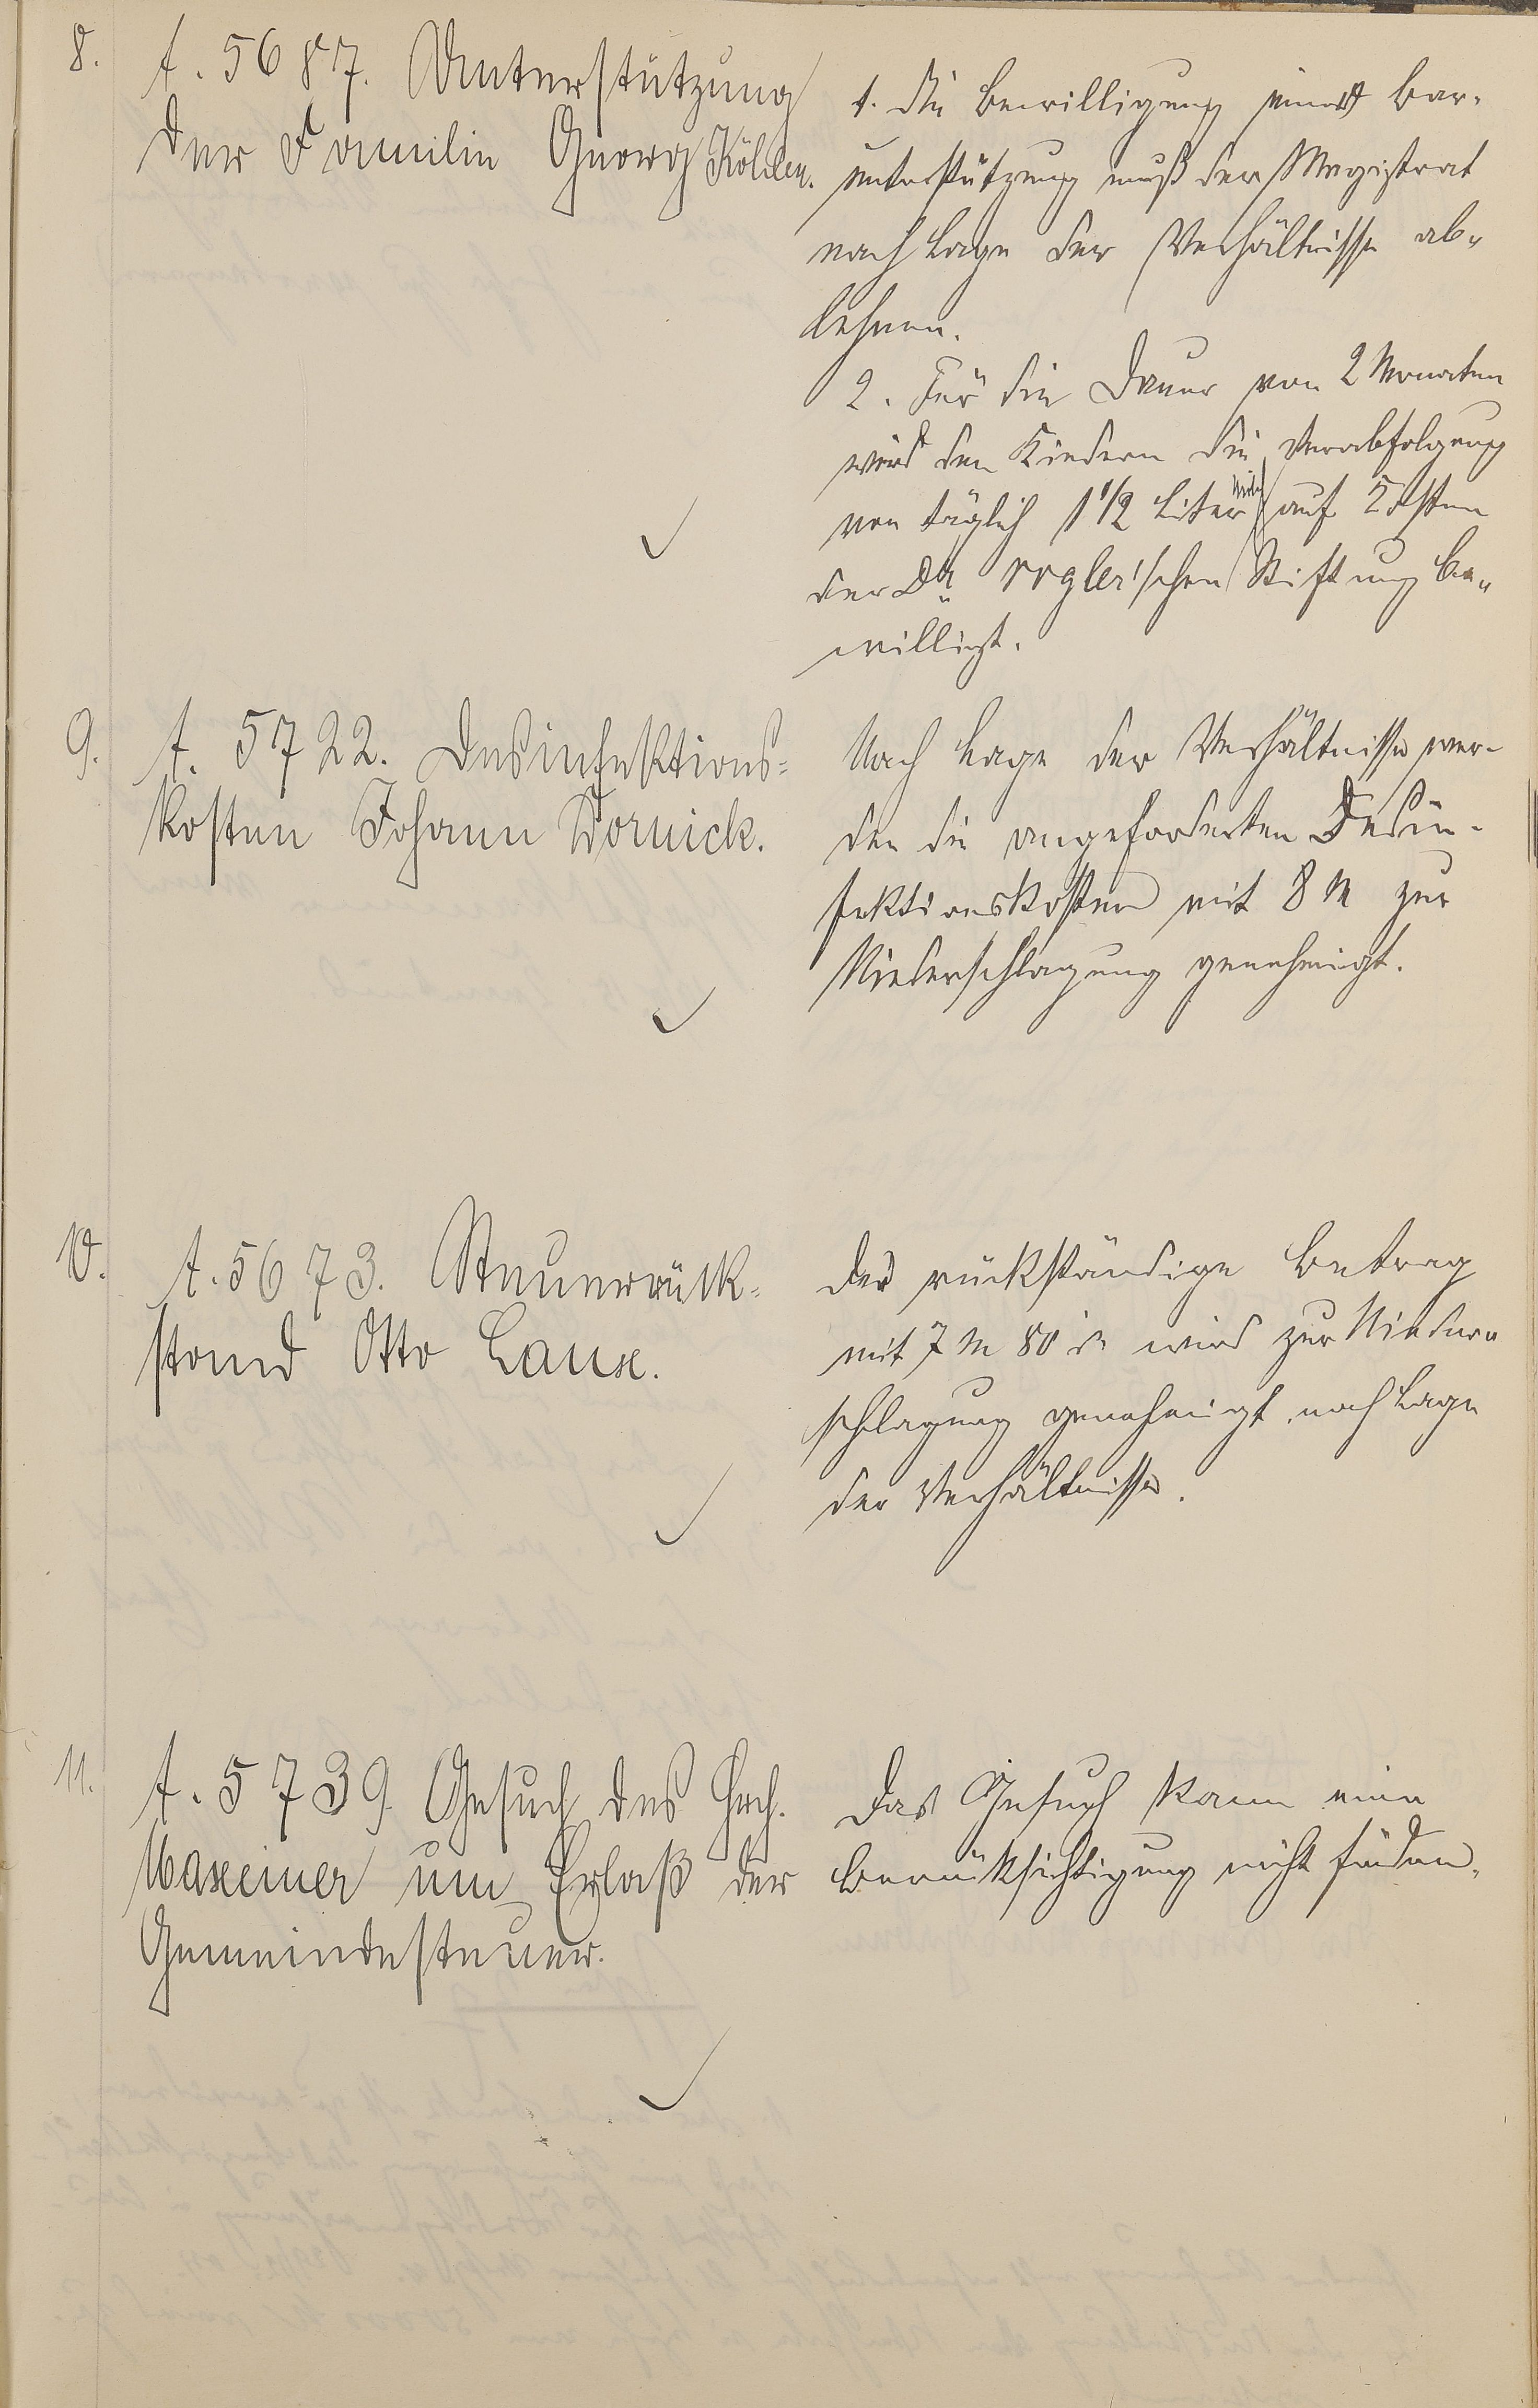 8.
t. 5687. Unterstützung
der Familie Georg Köhler.
1. Die Bewilligung einer Bar-
unterstützung muß der Magistrat
nach Lage der Verhältnisse ab-
lehnen.
2. Für die Dauer von 2 Monaten
wird den Kindern die Verabfolgung
von täglich 1 1/2 Liter Milch auf Kosten
der Dr. 'schen Stiftung be-
willigt.
9.
t. 5722. Desinfektions-
kosten Johann Dornick.
Nach Lage der Verhältnisse wer-
den die angeforderten Desin-
fektionskosten mit 8 M zur
Niederschlagung genehmigt.
10.
t. 5673. Steuerrück-
stand Otto Laux.
Der rückständige Betrag
mit 7 M 80 ₰ wird zur Nieder-
schlagung genehmigt nach Lage
der Verhältnisse.
11.
t. 5739. Gesuch des Hch.
Maxeiner um Erlaß der
Gemeindesteuer.
Das Gesuch kann eine
Berücksichtigung nicht finden.